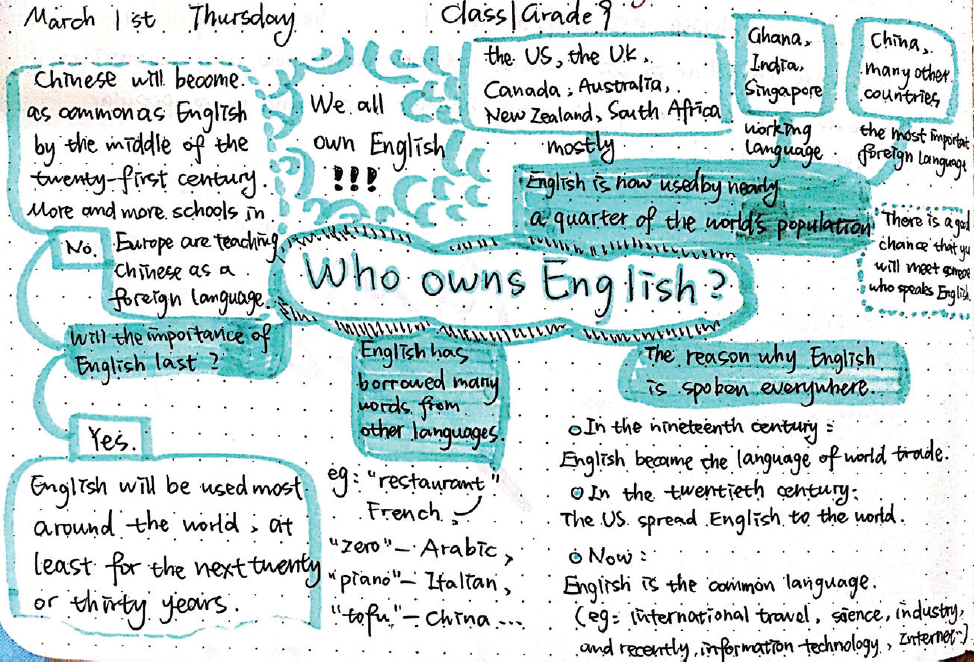 March 1st Thursday
Class 1 Grade 9
Chinese will become
as common as English
by the middle of the
twenty-first century.
More and more schools in
Europe are teaching
Chinese as a
foreign language.
No.
We all
own English
!!!
the US, the UK,
Canada, Australia,
New Zealand, South Africa
mostly
Ghana,
India,
Singapore
working
language
China,
many other
countries
the most important
foreign language
English is now used by nearly
a quarter of the world's population
There is a
chance that
will meet
who speaks English
Who owns English?
Will the importance of
English last?
Yes.
English will be used most
around the world, at
least for the next twenty
or thirty years.
English has
borrowed many
words from
other languages.
eg: "restaurant"
French,
"zero" – Arabic,
"piano" – Italian,
"tofu" – China ...
The reason why English
is spoken everywhere.
In the nineteenth century:
English become the language of world trade.
In the twentieth century:
The US spread English to the world.
Now:
English is the common language.
(eg: international travel, sience, industry,
and recently, information technology, Internet...)